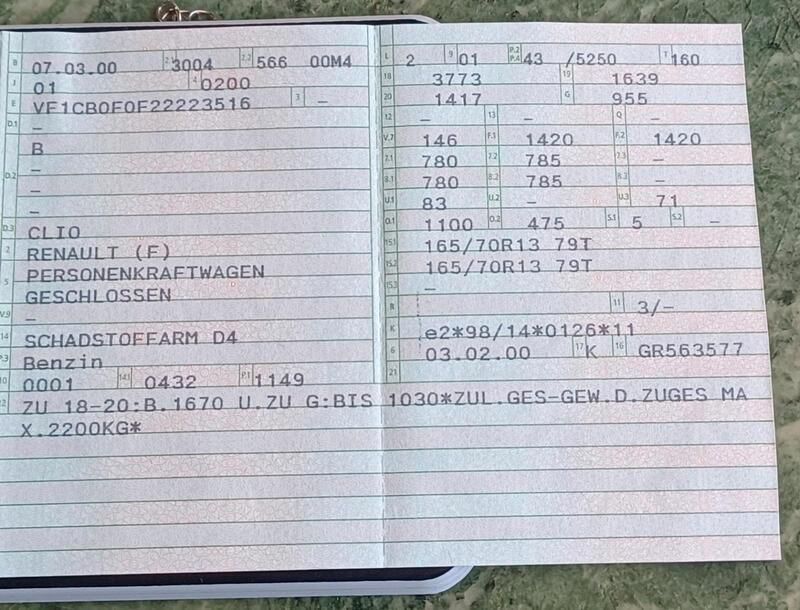 B 07.03.00 2.1 3004 2.2 566 00M4
J 01 4 0200
E VF1CB0F0F22223516 3 –
D.1 –
B
D.2 –
–
–
D.3 CLIO
2 RENAULT (F)
5 PERSONENKRAFTWAGEN
GESCHLOSSEN
V.9 –
14 SCHADSTOFFARM D4
P.3 Benzin
10 0001 14.1 0432 P.1 1149
L 2 9 01 P.2 P.4 43 /5250 T 160
18 3773 19 1639
20 1417 G 955
12 – 13 – Q –
V.7 146 F.1 1420 F.2 1420
7.1 780 7.2 785 7.3 –
8.1 780 8.2 785 8.3 –
U.1 83 U.2 – U.3 71
O.1 1100 O.2 475 S.1 5 S.2 –
15.1 165/70R13 79T
15.2 165/70R13 79T
15.3 –
R 11 3/–
K e2*98/14*0126*11
6 03.02.00 17 K 16 GR563577
21
22 ZU 18-20:B.1670 U.ZU G:BIS 1030*ZUL.GES-GEW.D.ZUGES MA
X.2200KG*